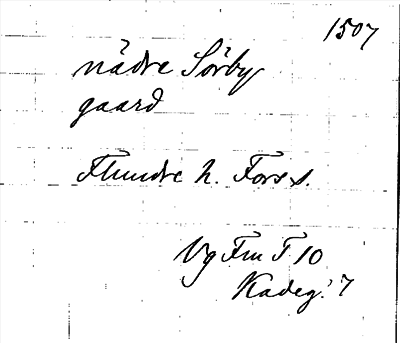 1507
nädre Sörby
gaard
Flundre h. Fors s.
Vg Fru T 10
Kadeg: 7